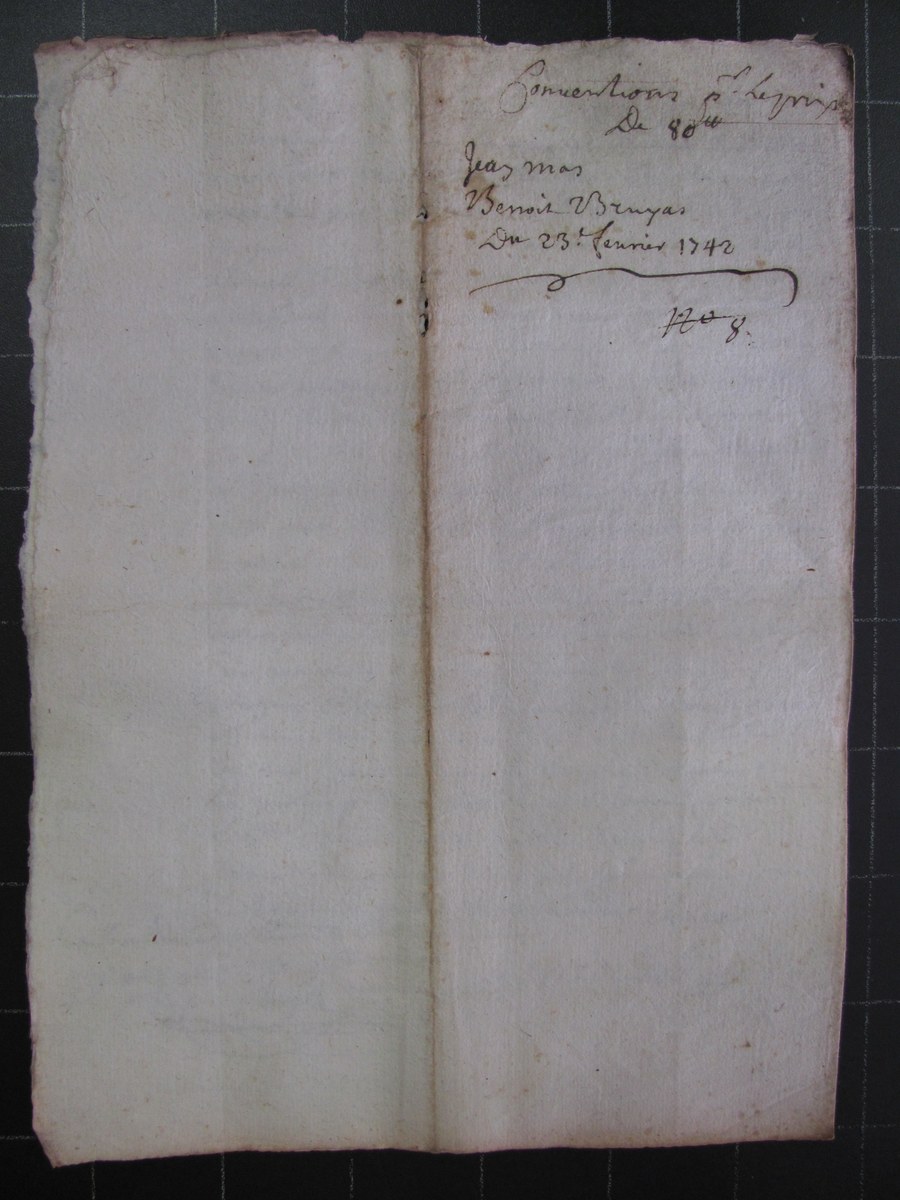 Conventions pr Le prix
De 80tt
Jean mas
Benoit Bruyas
Du 23e fevrier 1742
No 8.